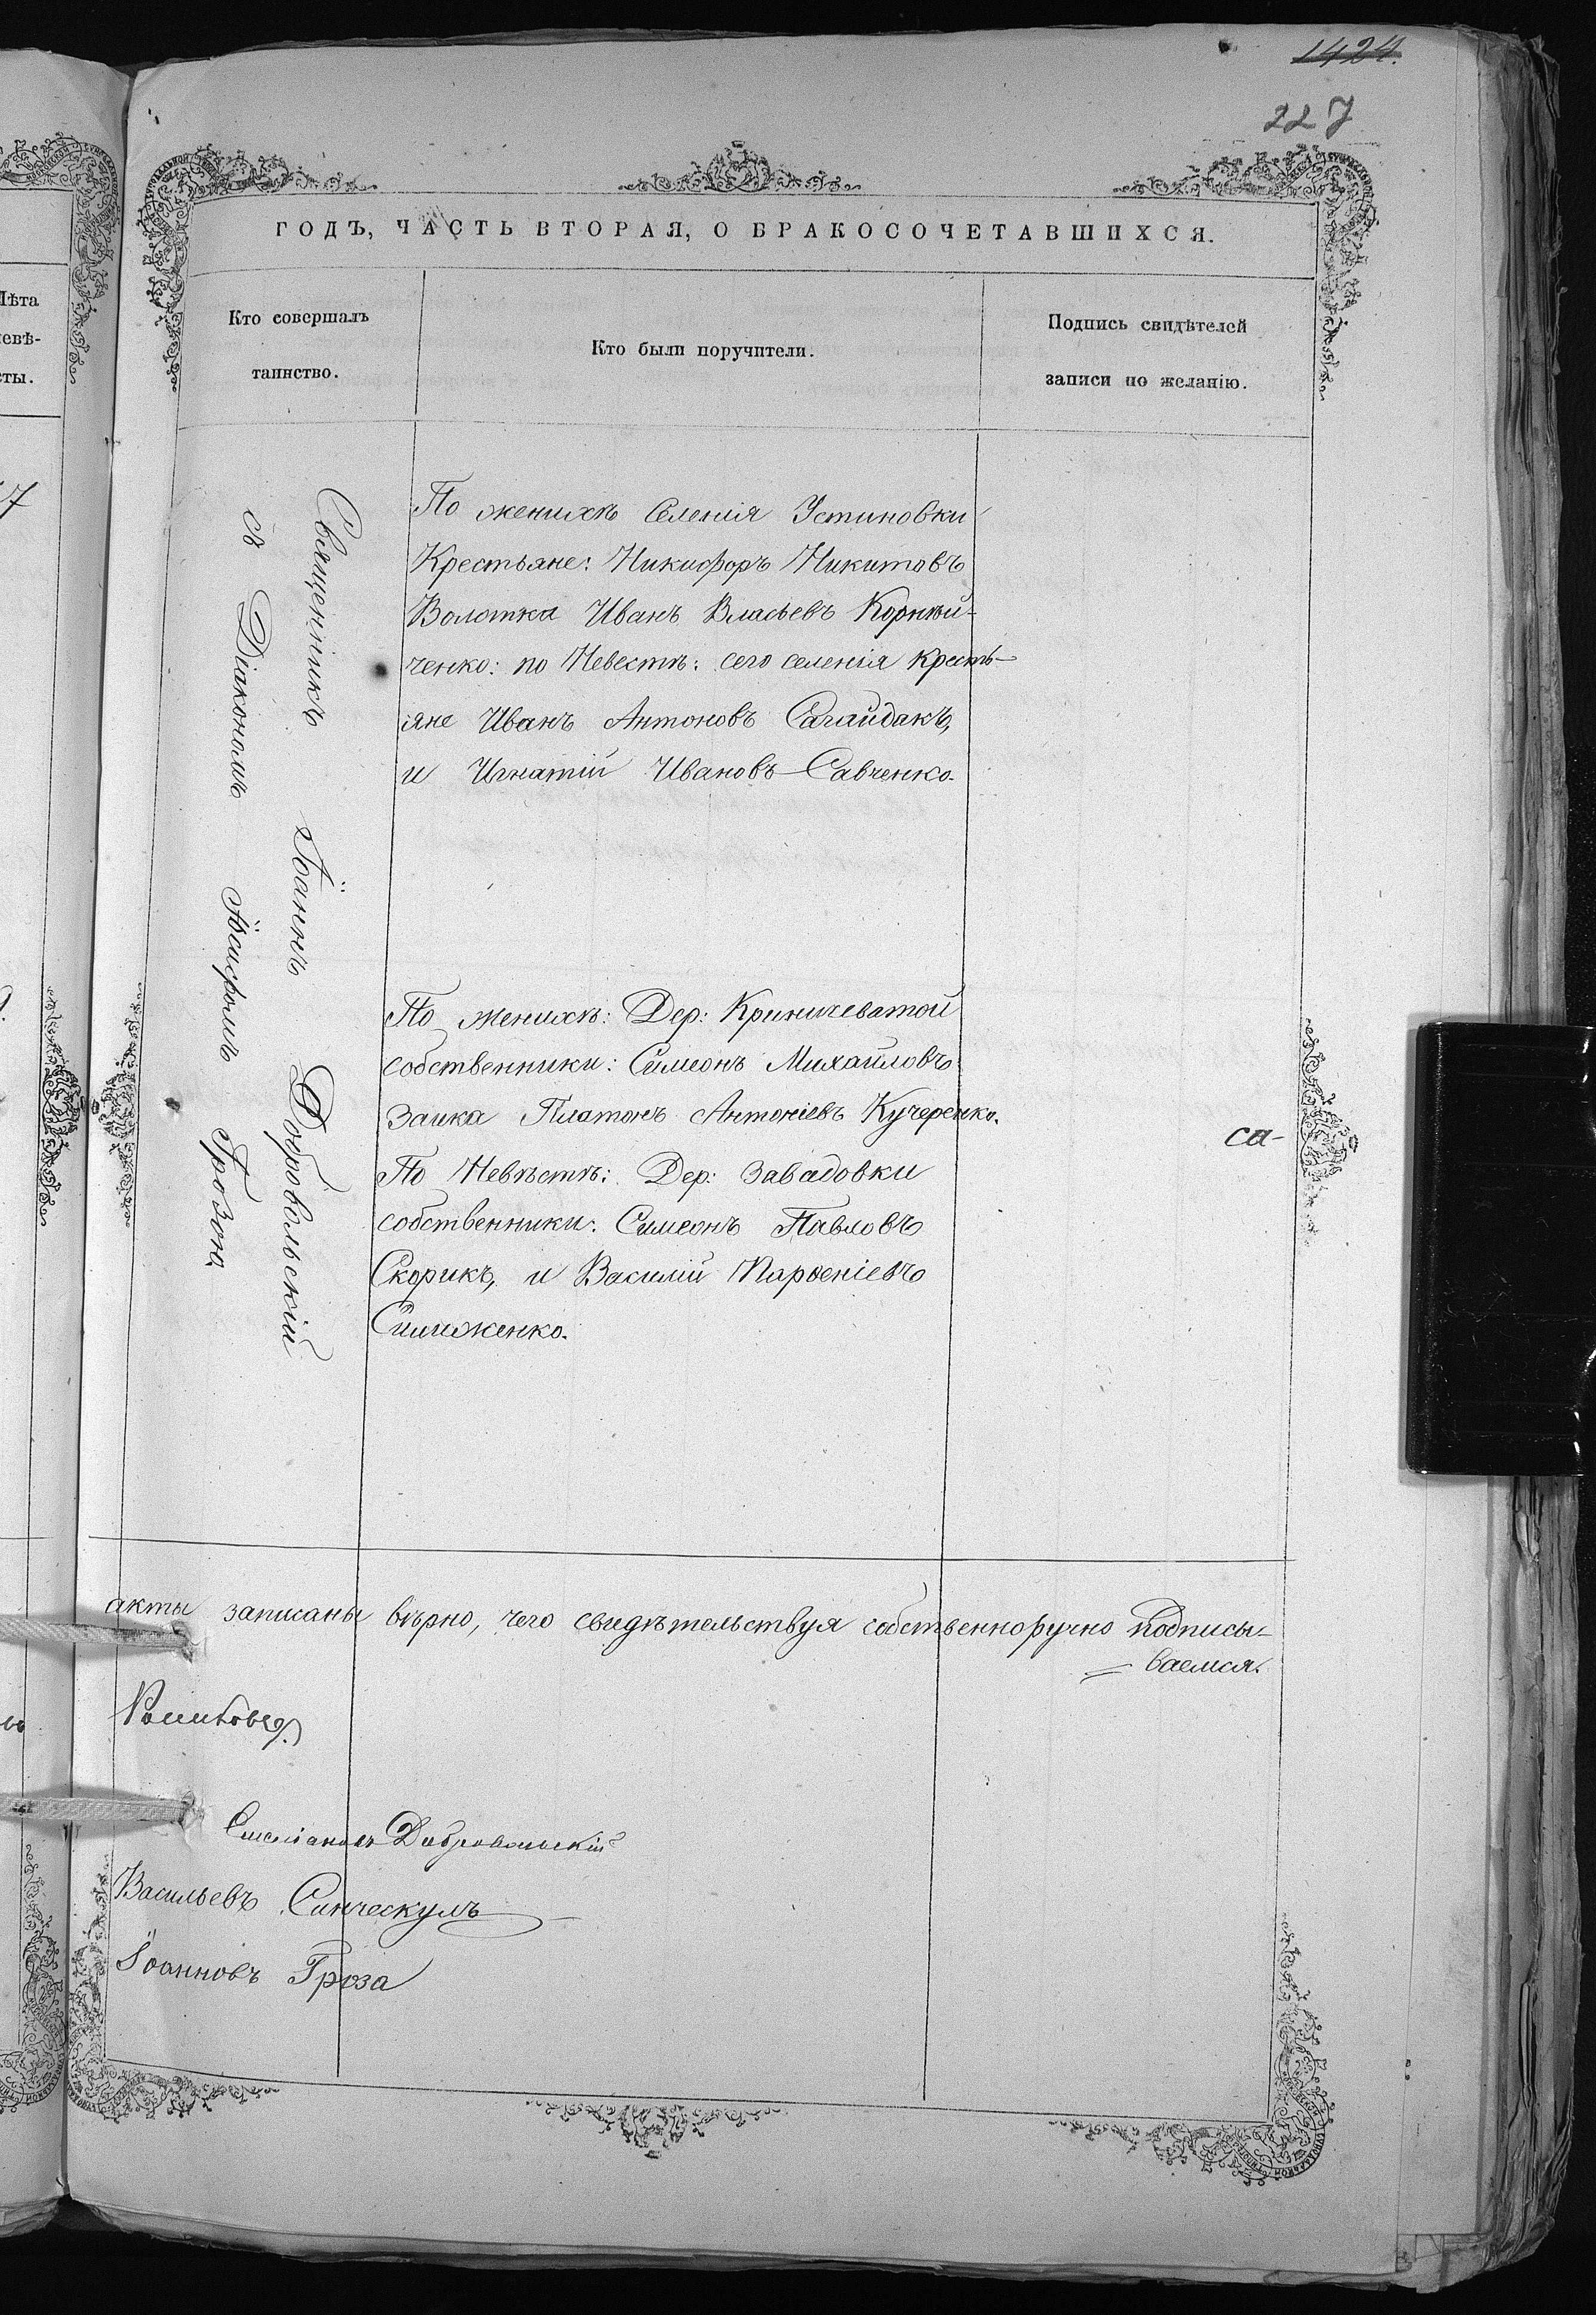 1424.
227
ГОДЪ, ЧАСТЬ ВТОРАЯ, О БРАКОСОЧЕТАВШИХСЯ.
Лѣта
невѣ-
сты.
Кто совершалъ
таинство.
Кто были поручители.
Подпись свидѣтелей
записи по желанію.
Священникъ Іоаннъ Добровольскій
съ Діакономъ Іосифомъ Грозою
По женихѣ Селенія Устиновки
Крестьяне: Никифоръ Никитовъ
Волотка Иванъ Власьевъ Корнѣй-
ченко: по Невестѣ: сего селенія кресть-
яне Иванъ Антоновъ Сагайдакъ,
и Игнатій Ивановъ Савченко.
По женихѣ: Дер: Криничеватой
собственники: Симеонъ Михайловъ
Заика Платонъ Антоніевъ Кучеренко.
По Невѣстѣ: Дер: Завадовки
собственники: Симеонъ Павловъ
Скорикъ, и Василій Парѳеніевъ
са-
акты записаны вѣрно, чего свидѣтельствуя собственноручно подписы-
= ваемся.
Добровольскій
Васильевъ
Іоанновъ Гроза